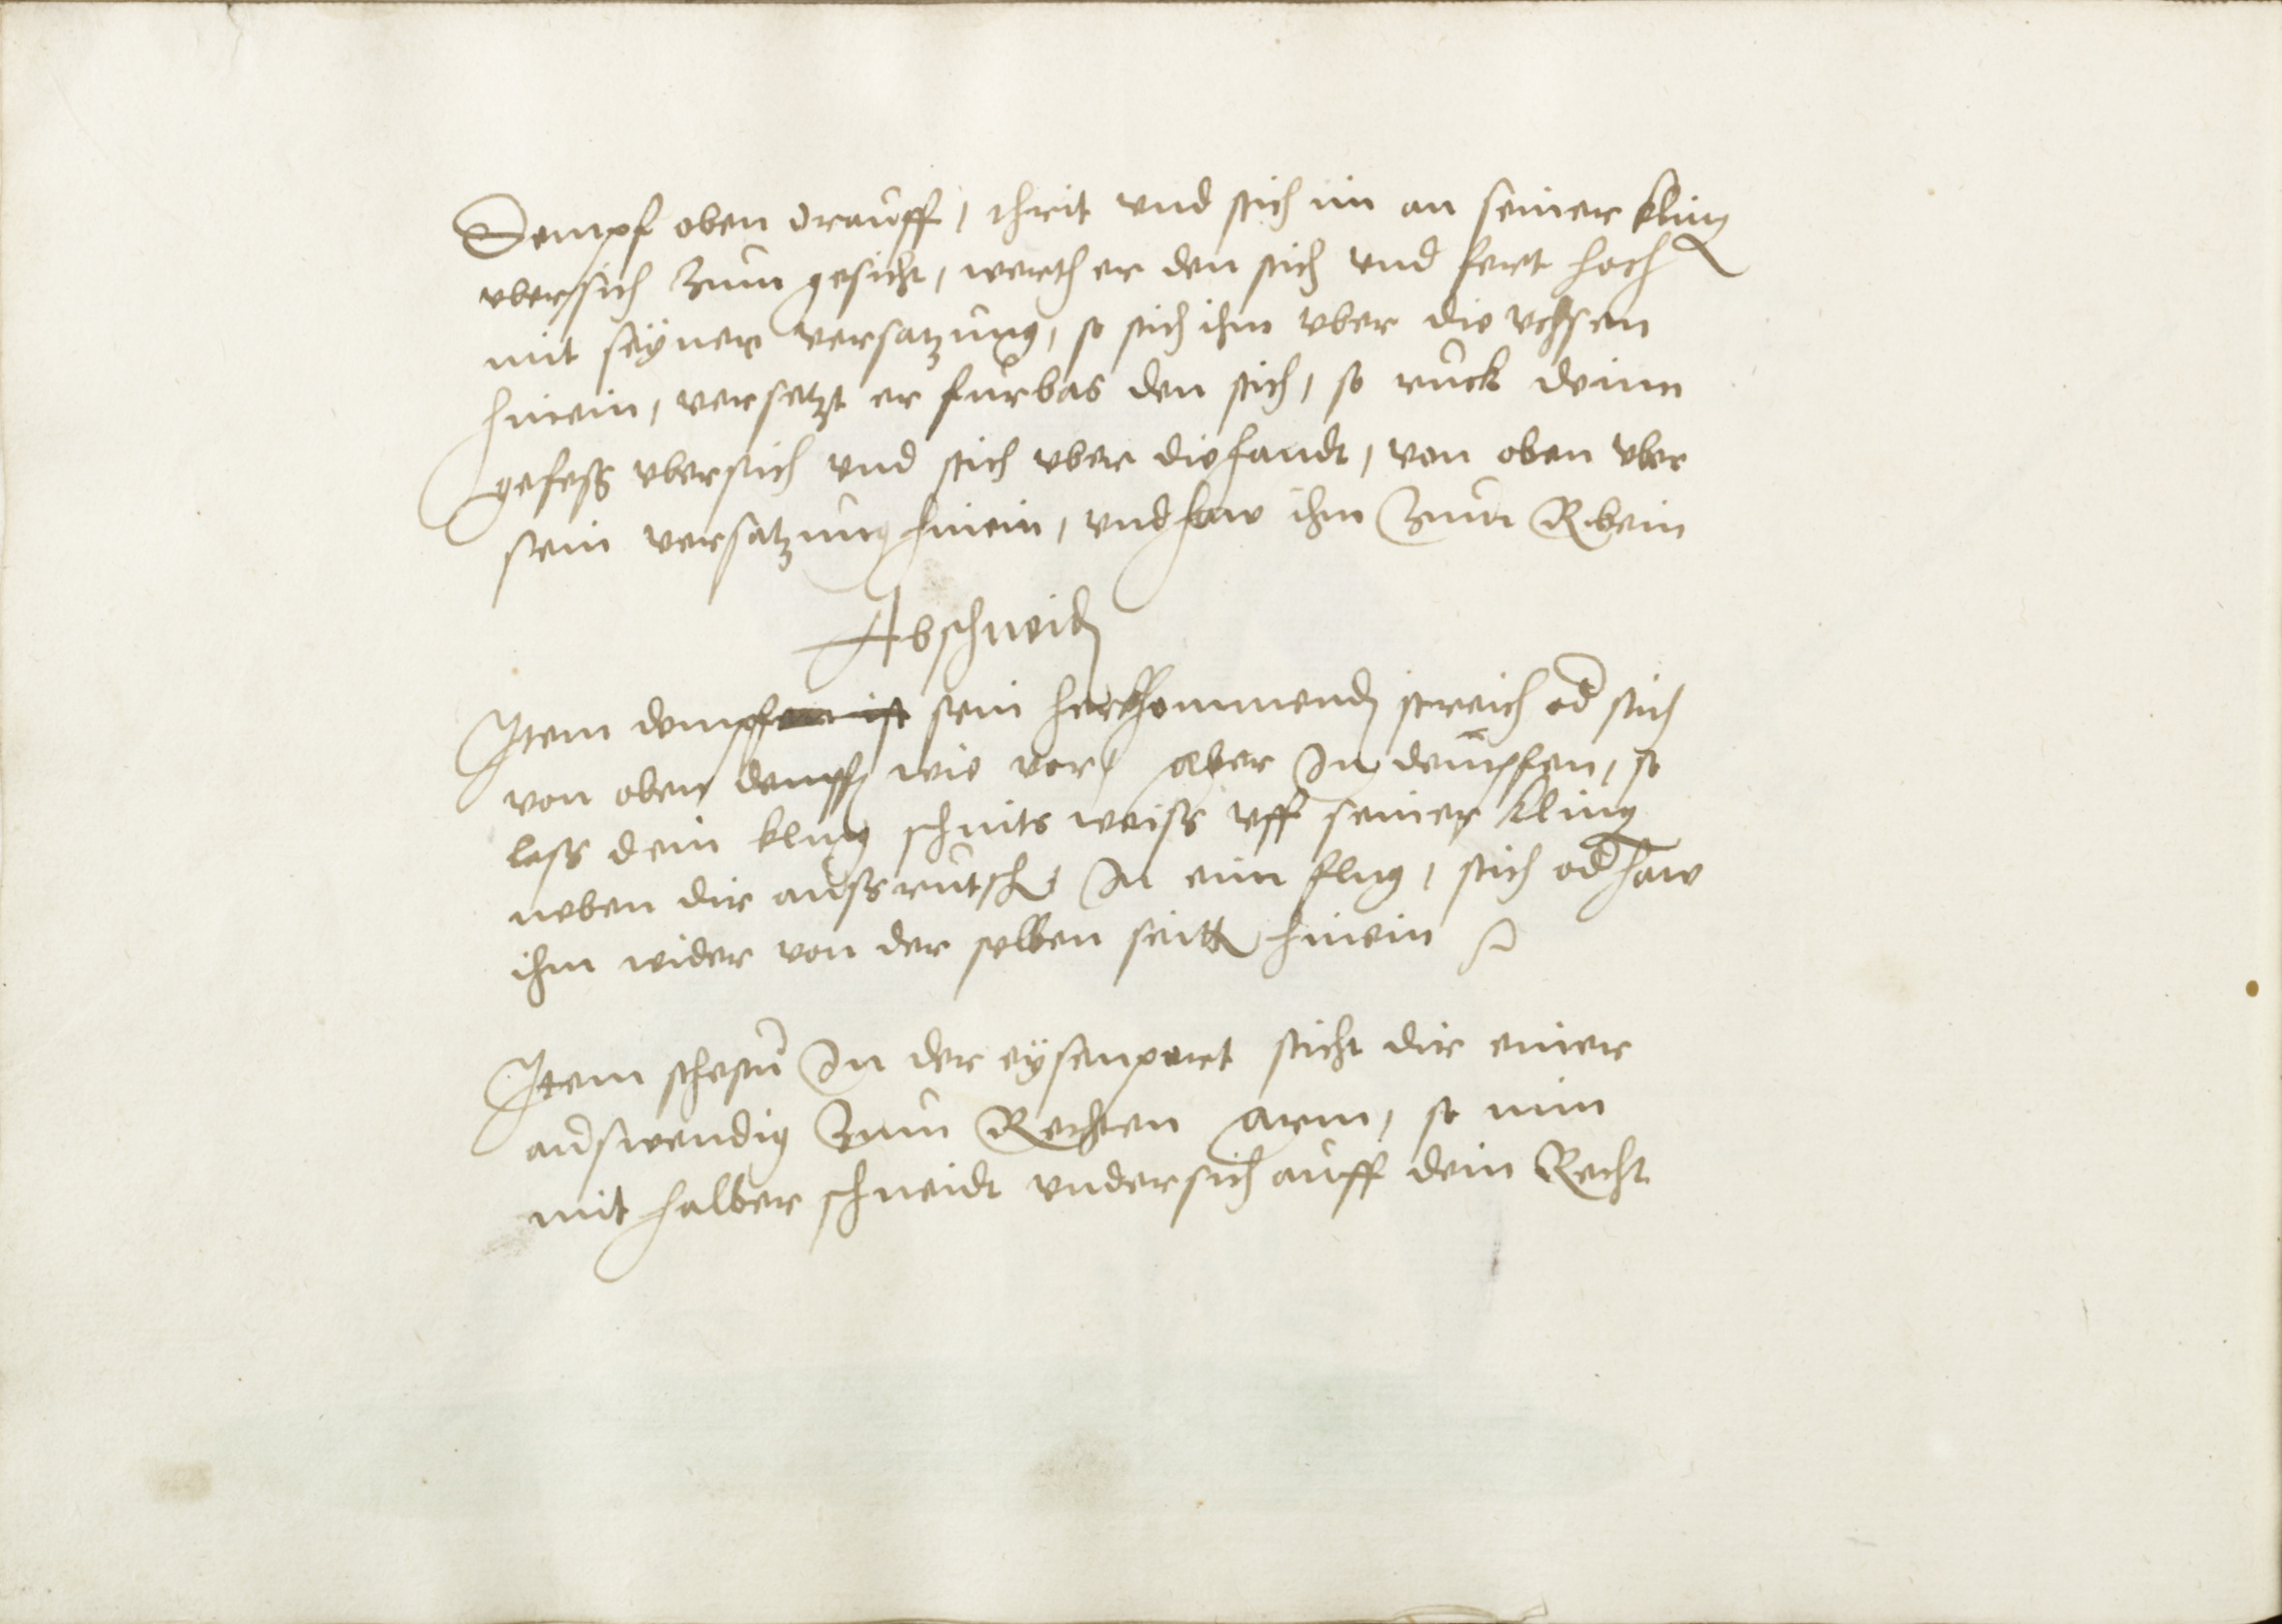 Dempf oben drauff, thrit vnd stich im an seiner kling
vbersich zum gesicht, werth er den stich vnd fert hoch
mit seyner versatzung, so stich ihm vber die vchsen
hinein, versetzt er furbas den stich, so ruck deinn
gefess vbersich vnd stich vber die handt, von oben vber
sein versatzung hinein, vnd haw ihm zum R bein
Abschneid
Item dempf sein herkhommend streich od stich
von oben dempf wie vor, aber In dempfen, so
lass dein kling schnits weiss vff seiner kling
neben dir aussrutsch In eim flug, stich od haw
ihm wider von der selben seitt hinein
Item In der eysenport sticht dir einer
auswendig zum Rechten arm, so nim
mit halber schneidt vndersich auff dein Recht